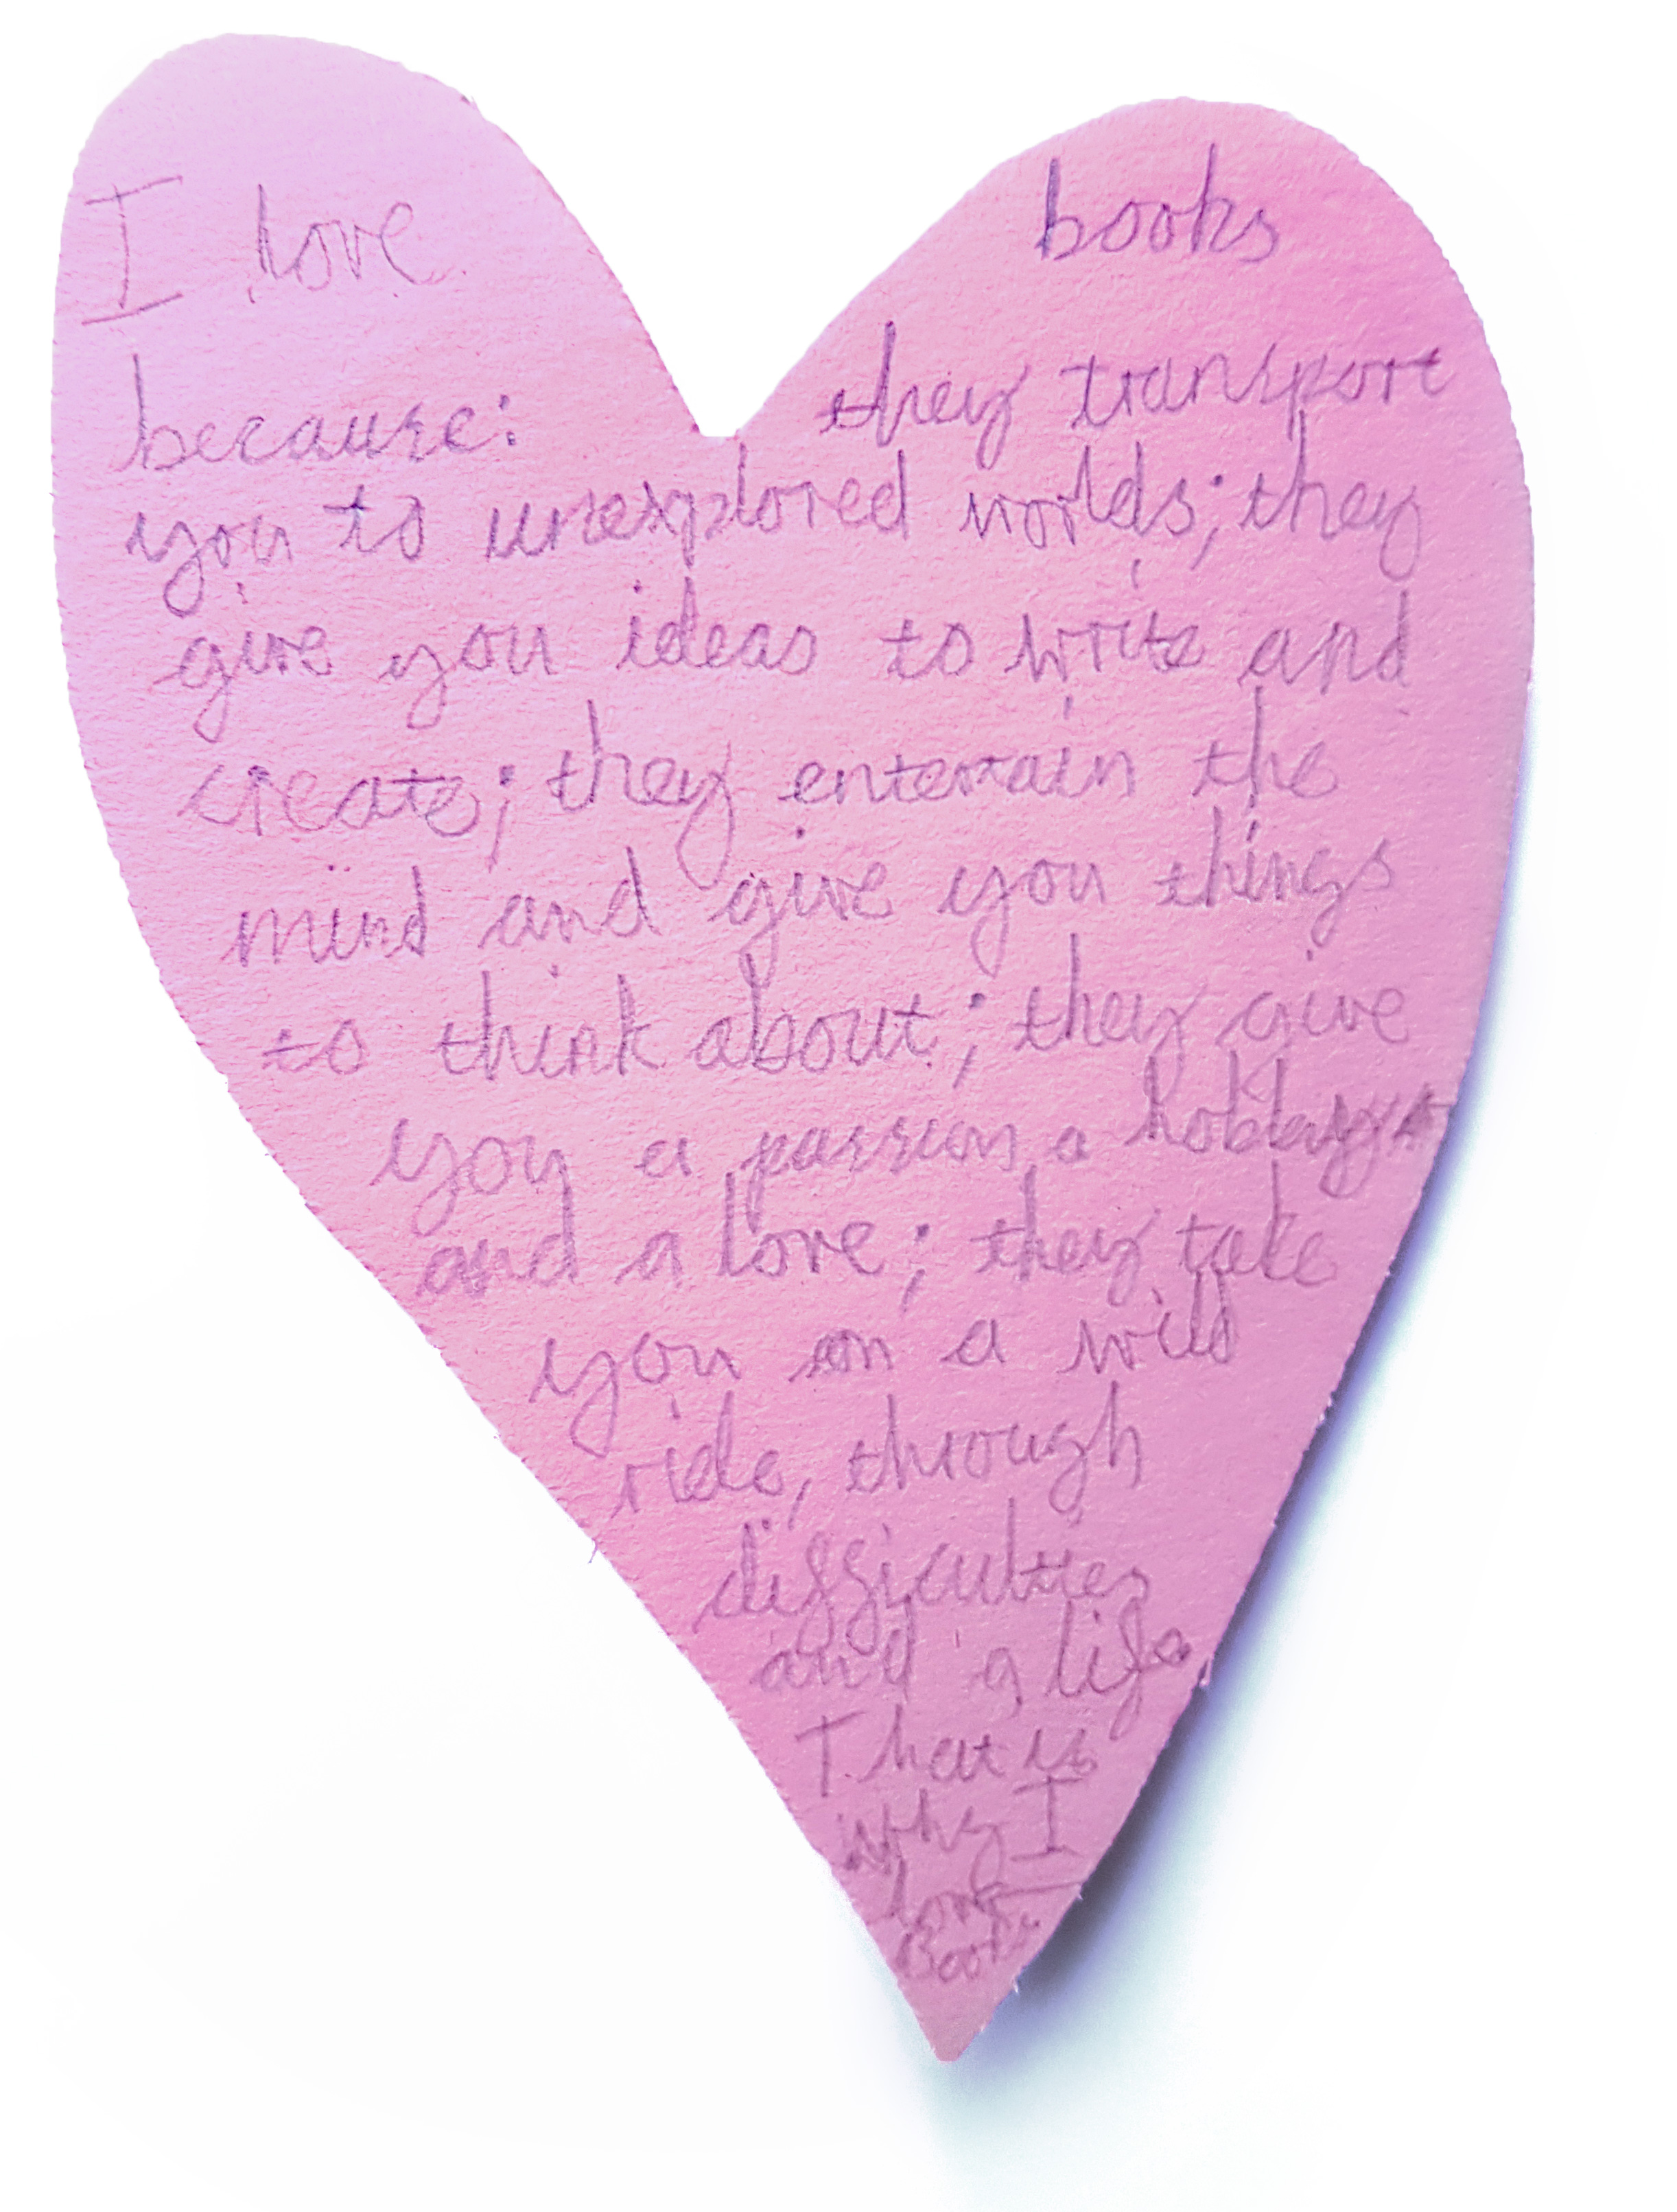 I love books
because: they transport
you to unexplored worlds; they
give you ideas to write and
create; they entertain the
mind and give you things
to think about; they give
you a passion a hobby
and a love; they take
you on a wild
ride, through
difficulties
and a life
That is
why I
love
Books